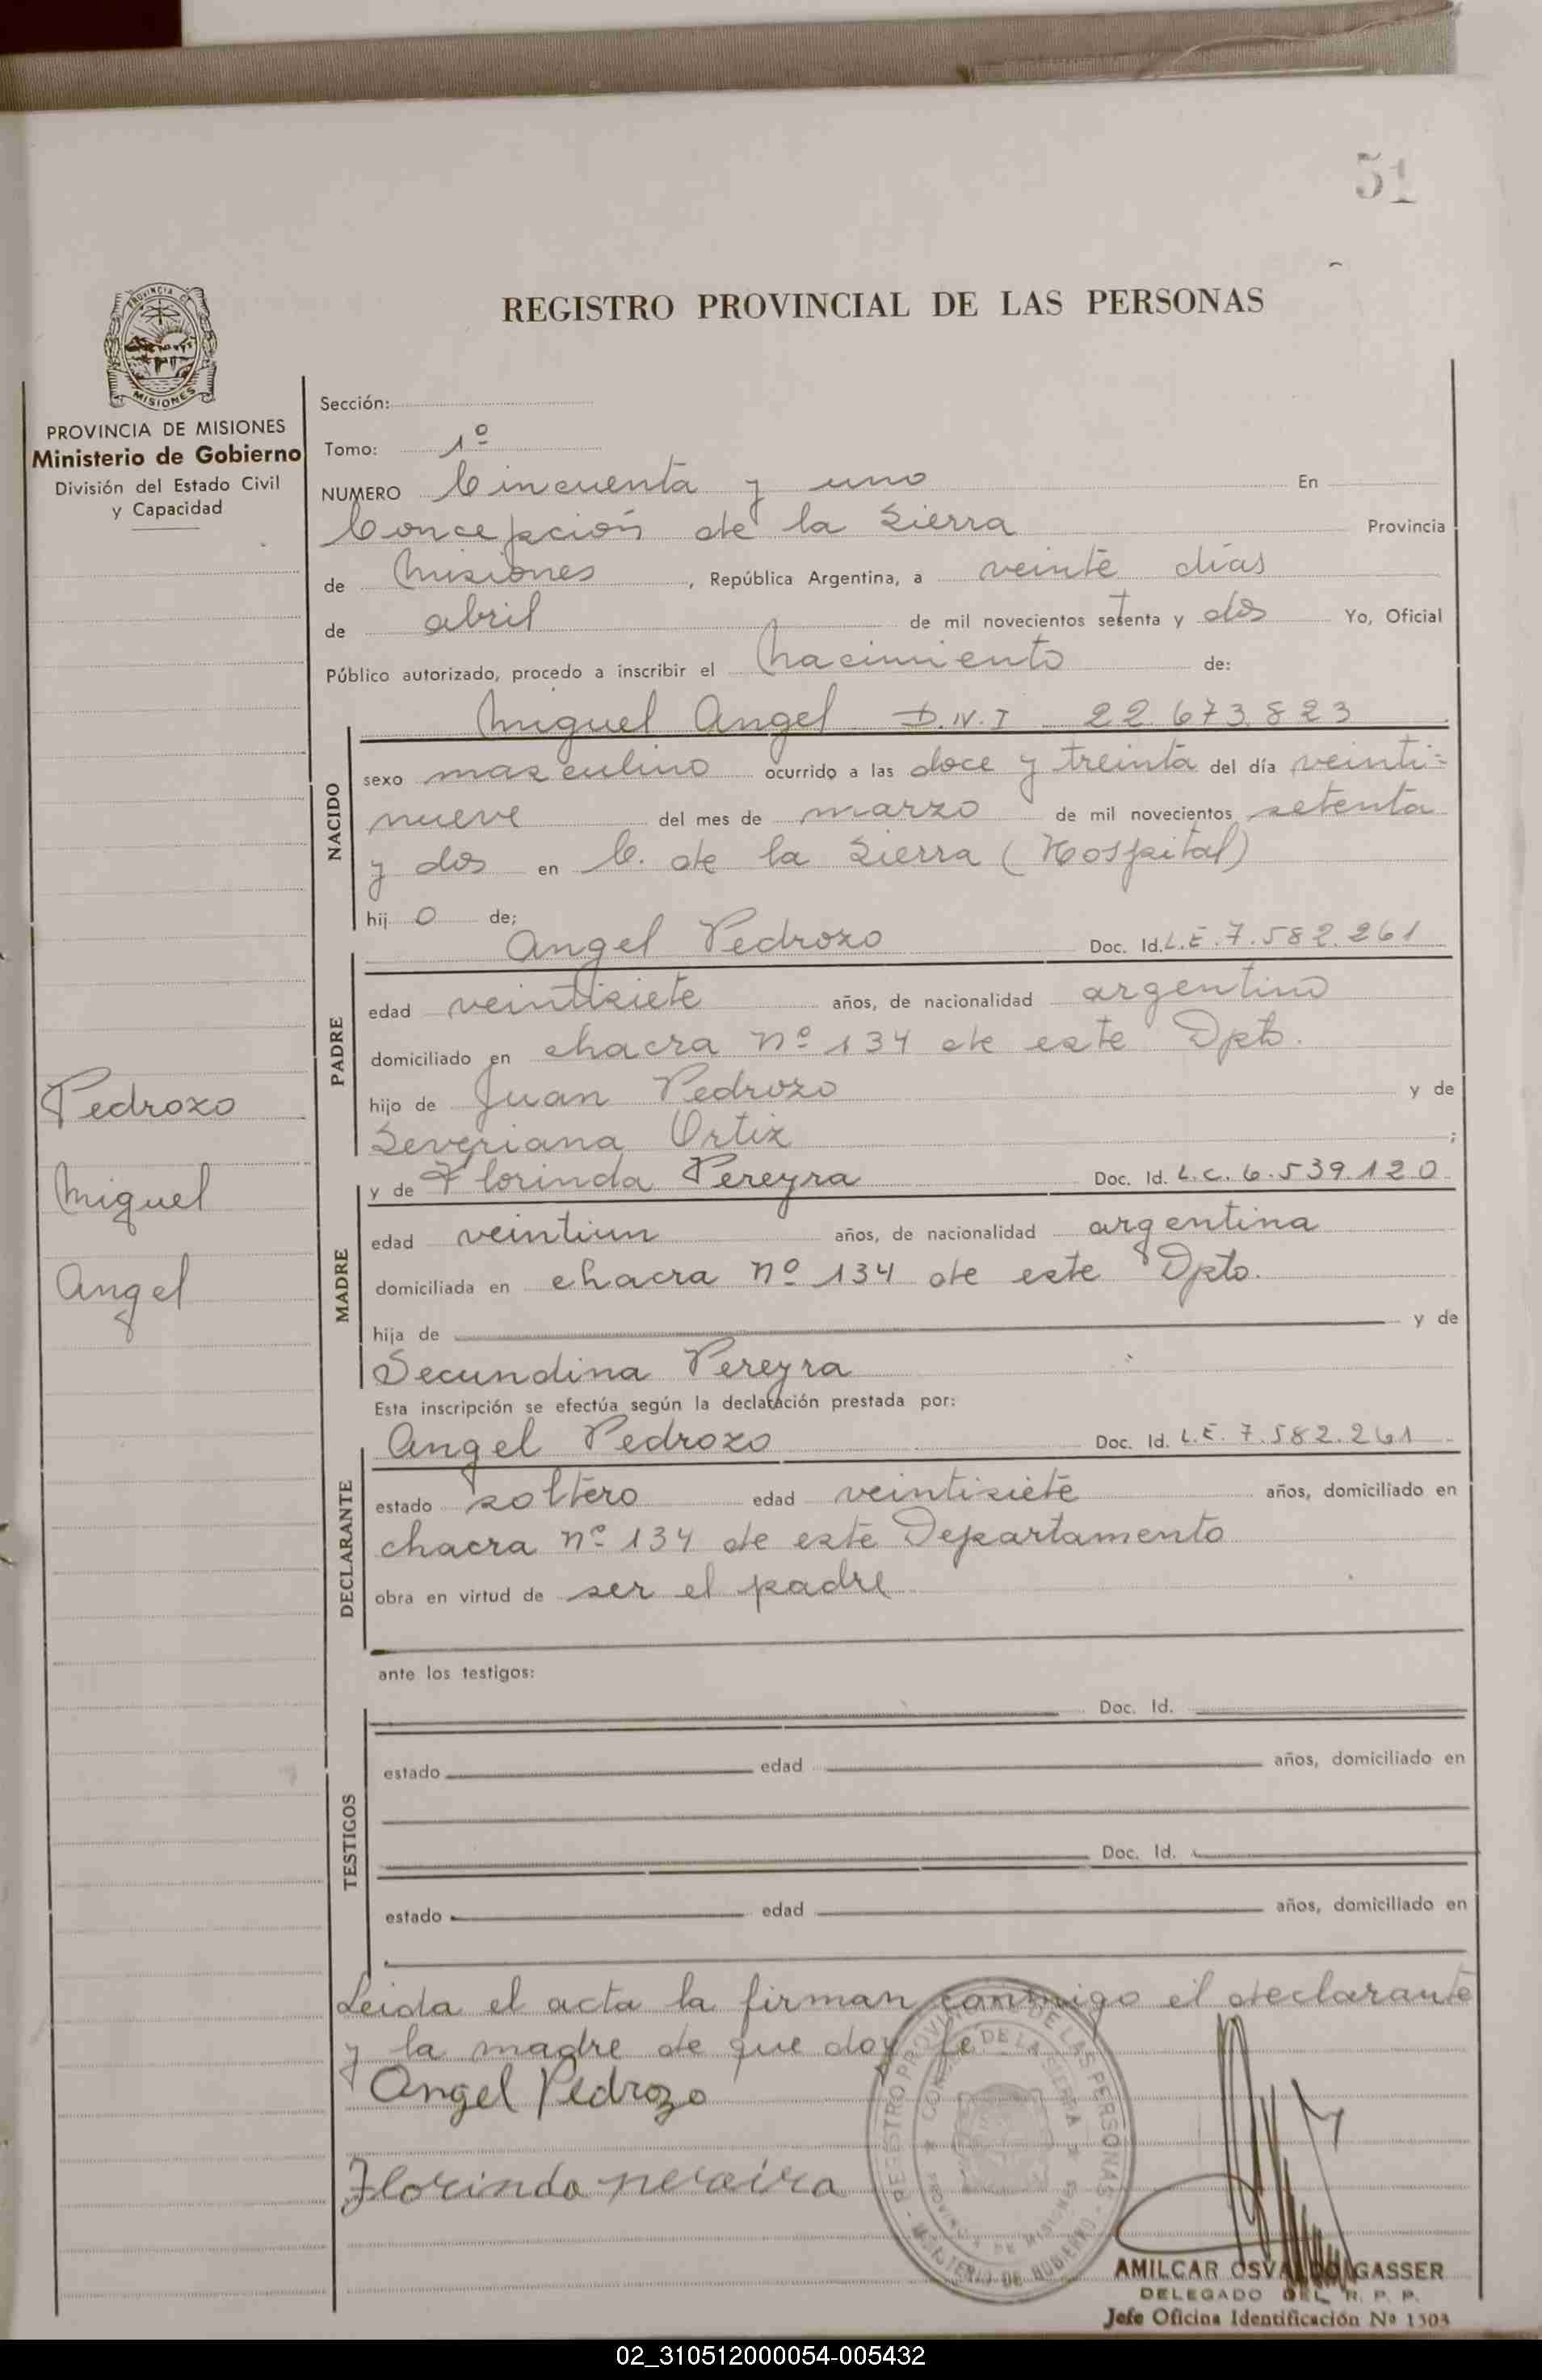 51
REGISTRO PROVINCIAL DE LAS PERSONAS
PROVINCIA DE MISIONES
Ministerio de Gobierno
División del Estado Civil
y Capacidad
Sección:
Tomo: 1º
NUMERO Cincuenta y uno En
Concepción de la Sierra Provincia
de Misiones, República Argentina, a veinte días
de abril de mil novecientos setenta y dos Yo, Oficial
Público autorizado, procedo a inscribir el Nacimiento de:
Miguel Angel D.N.I 22.673.823
NACIDO
sexo masculino ocurrido a las doce y treinta del día veinti-
nueve del mes de marzo de mil novecientos setenta
y dos en C. de la Sierra (Hospital)
hijo de;
Angel Pedrozo Doc. Id. L.E. 7.582.261
PADRE
edad veintisiete años, de nacionalidad argentino
domiciliado en chacra nº 134 de este Dpto.
hijo de Juan Pedrozo y de
Severiana Ortiz;
y de Florinda Pereyra Doc. Id. L.C. 6.539.120
MADRE
edad veintiun años, de nacionalidad argentina
domiciliada en chacra nº 134 de este Dpto.
hija de y de
Secundina Pereyra
Pedrozo
Miguel
Angel
Esta inscripción se efectúa según la declaración prestada por:
Angel Pedrozo Doc. Id. L.E. 7.582.261
DECLARANTE
estado soltero edad veintisiete años, domiciliado en
chacra nº 134 de este Departamento
obra en virtud de ser el padre
ante los testigos:
Doc. Id.
TESTIGOS
estado edad años, domiciliado en
Doc. Id.
estado edad años, domiciliado en
Leida el acta la firman conmigo el declarante
y la madre de que doy fe
Angel Pedrozo
Florinda peraira
REGISTRO PROVINCIAL DE LAS PERSONAS - MINISTERIO DE GOBIERNO
CONC. DE LA SIERRA
PROVINCIA DE MISIONES
AMILCAR OSVALDO GASSER
DELEGADO DEL R. P. P.
Jefe Oficina Identificación Nº 1503
02_310512000054-005432